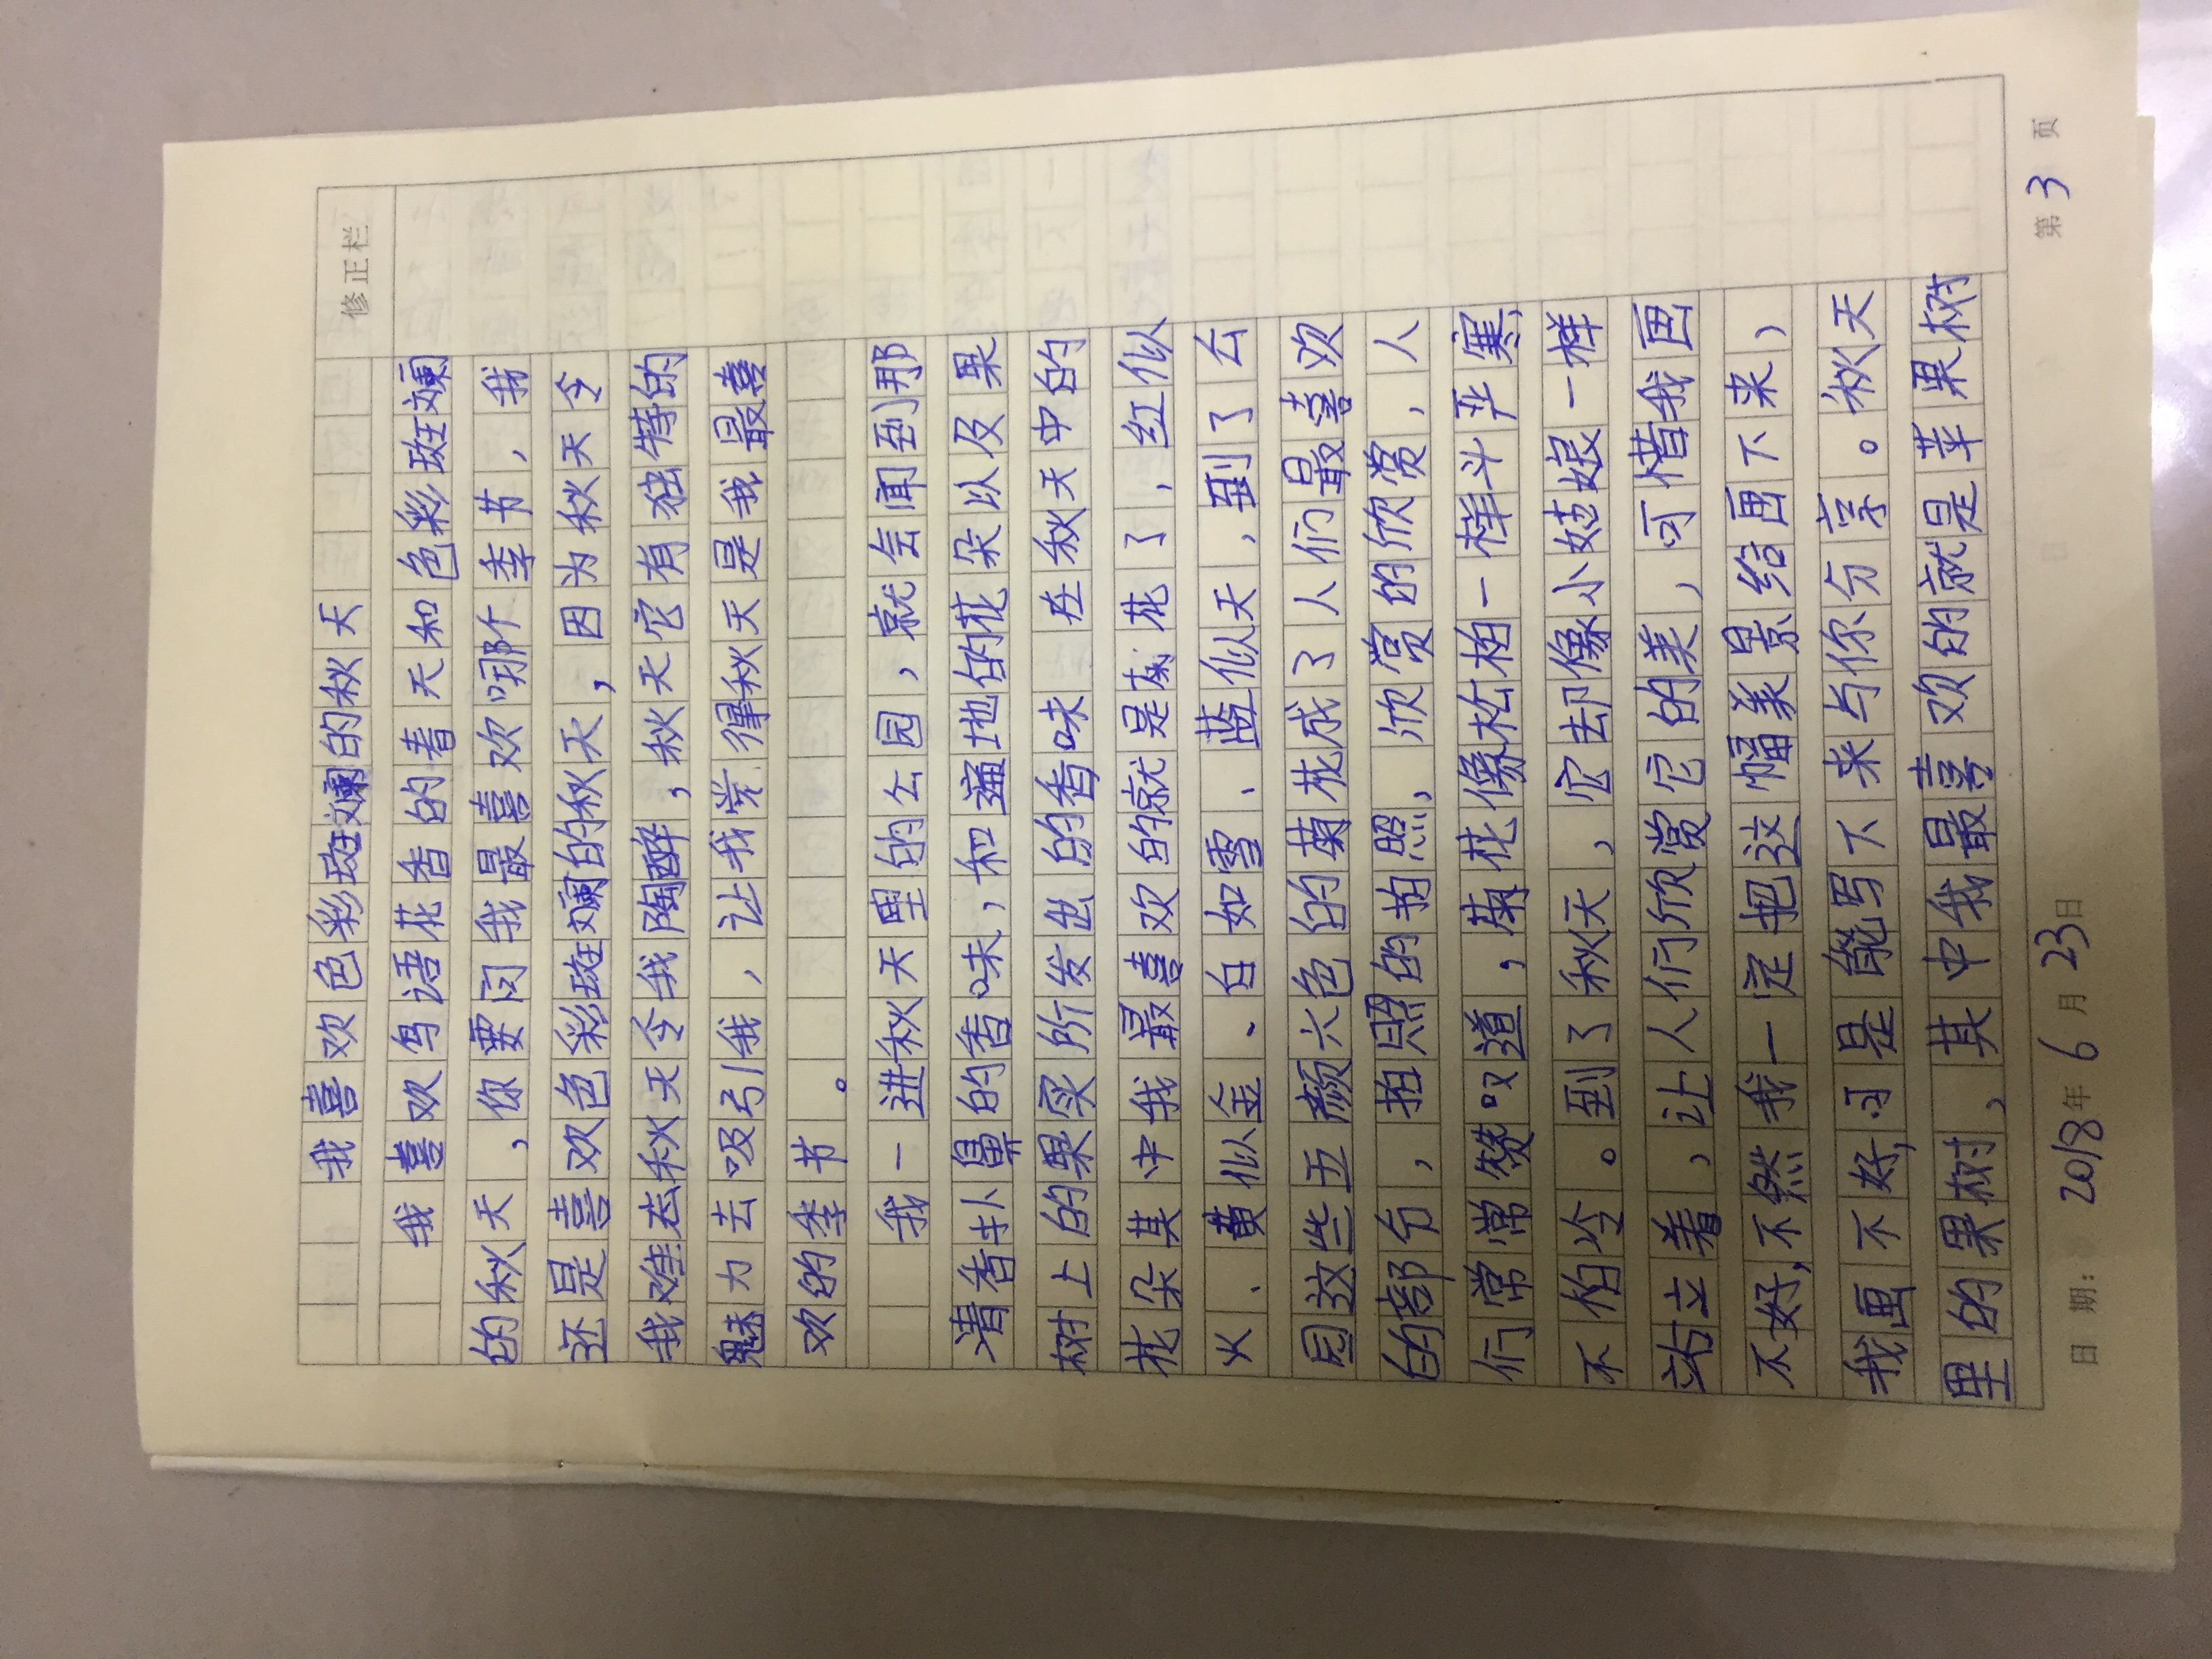 修正栏
我喜欢色彩斑斓的秋天
我喜欢鸟语花香的春天和色彩斑斓
的秋天，你要问我最喜欢哪个季节，我
还是喜欢色彩斑斓的秋天，因为秋天令
我难忘秋天令我陶醉，秋天它有独特的
魅力去吸引我，让我觉得秋天是我最喜
欢的季节。
我一进秋天里的公园，就会闻到那
清香扑鼻的香味，和遍地的花朵以及果
树上的果实所发出的香味 在秋天中的
花朵其中我最喜欢的就是菊花了，红似
火、黄似金、白如雪、蓝似天，到了公
园这些五颜六色的菊花成了人们最喜欢
的部分，拍照的拍照，欣赏的欣赏，人
们常常赞叹道，菊花像松柏一样斗平寒，
不怕冷。到了秋天，它却像小姑娘一样
站立着，让人们欣赏它的美，可惜我画
不好，不然我一定把这幅美景给画下来，
我画不好，可是能写下来与你分享。秋天
里的果树，其中我最喜欢的就是苹果树
日期：2018年6月23日
第3页